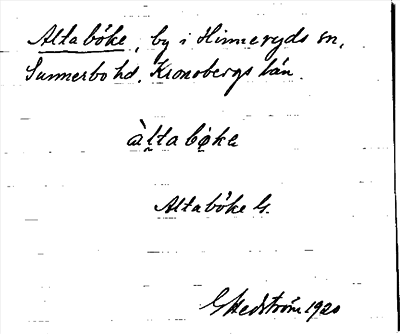 Altabóke, by i Hinneryds sn,
Sunnerbo hd. Kronobergs län.
àl̥ta bǫka
Altabóke G.
G Hedström 1920